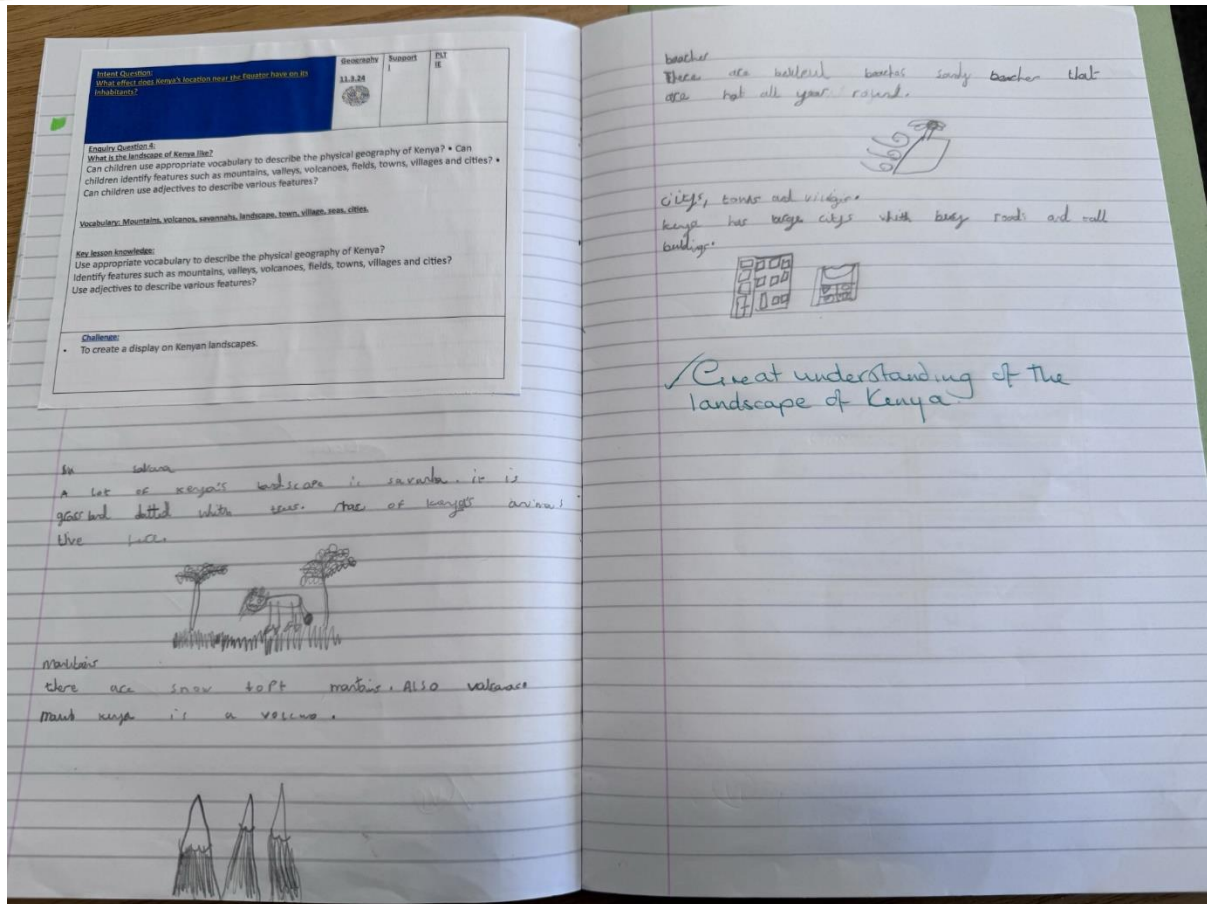 Intent Question:
What effect does Kenya's location near the Equator have on its
inhabitants?
Geography
11.3.24
Support
I
PLT
IE
Enquiry Question 4:
What is the landscape of Kenya like?
Can children use appropriate vocabulary to describe the physical geography of Kenya? • Can
children identify features such as mountains, valleys, volcanoes, fields, towns, villages and cities? •
Can children use adjectives to describe various features?
Vocabulary: Mountains, volcanos, savannahs, landscape, town, village, seas, cities.
Key lesson knowledge:
Use appropriate vocabulary to describe the physical geography of Kenya?
Identify features such as mountains, valleys, volcanoes, fields, towns, villages and cities?
Use adjectives to describe various features?
Challenge:
• To create a display on Kenyan landscapes.
A lot of Kenya's landscape is savanha. it is
grass land dotted whith of kenya's animals
live
there are snow topt montains. ALSO
kenya is a
There are sandy that
are hot all year round.
citys, towns and
kenya has large citys whith busy roads and tall
buildings.
✓ Great understanding of the
landscape of Kenya.